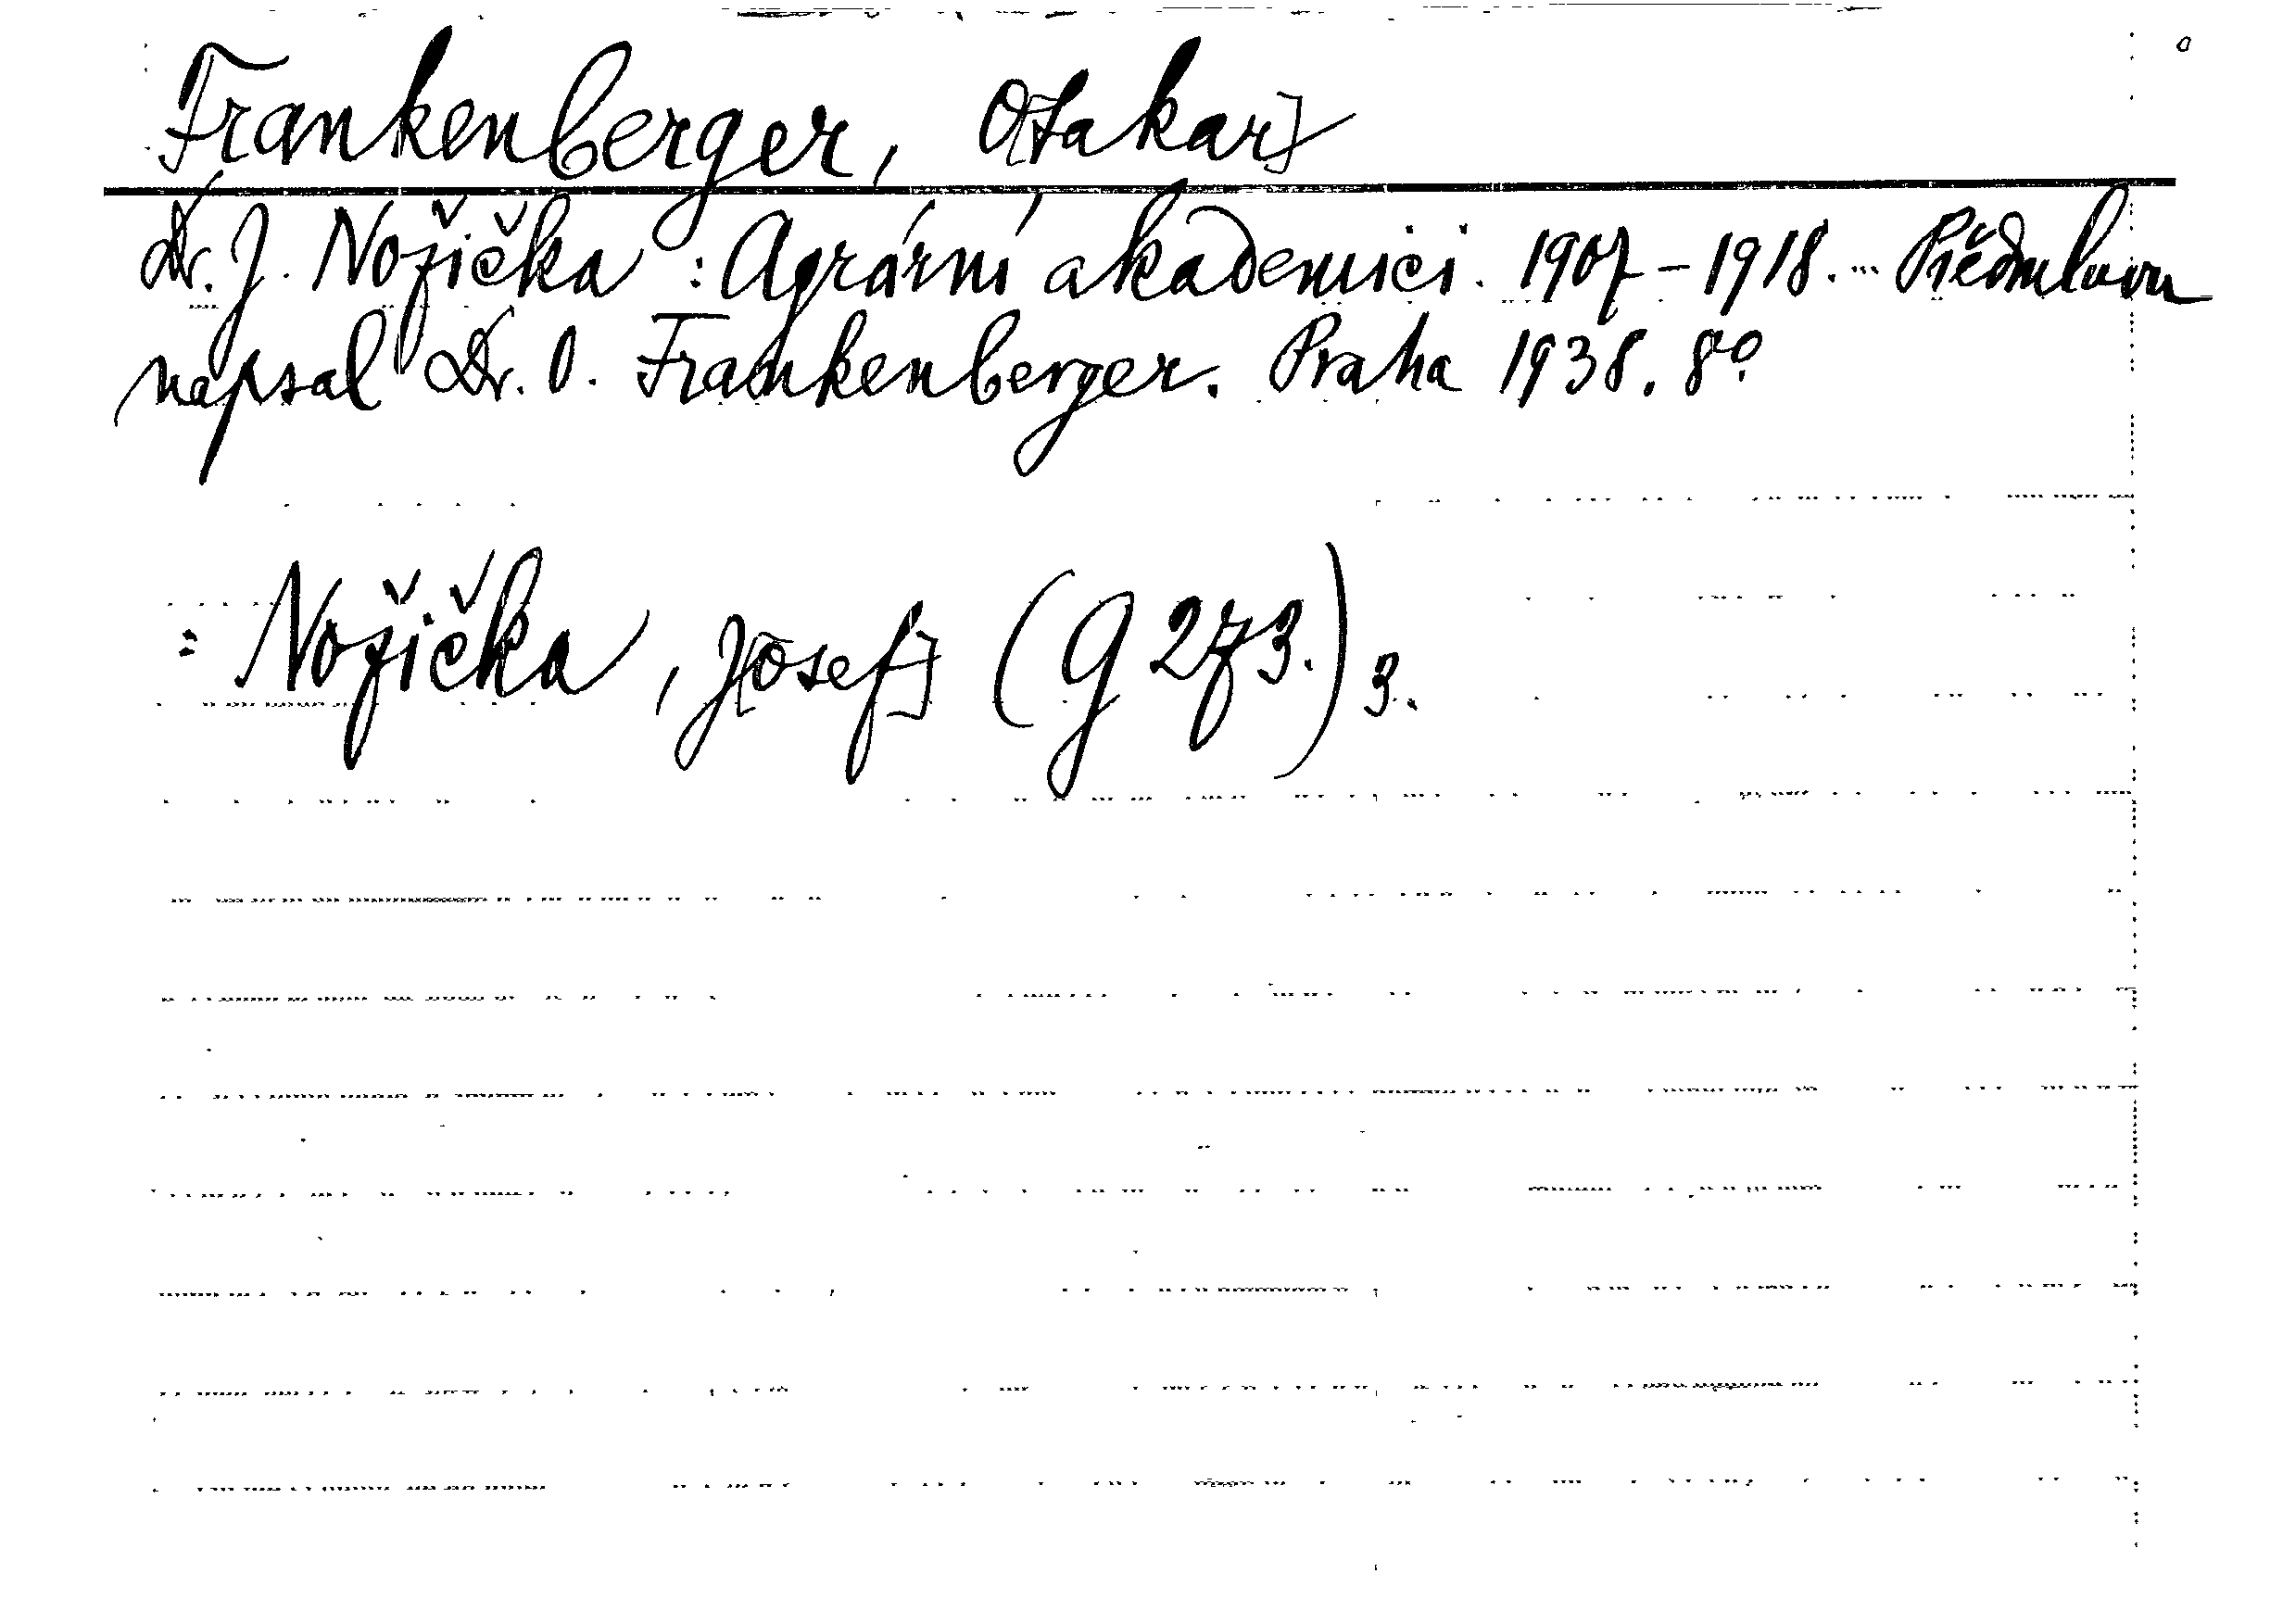 Frankenberger, O[takar]
Dr. J. Nožička: Agrární akademici. 1907-1918. ... Předmluvu
napsal Dr. O. Frankenberger. Praha 1938. 8°.
= Nožička, J[osef] (G 273.) 3.